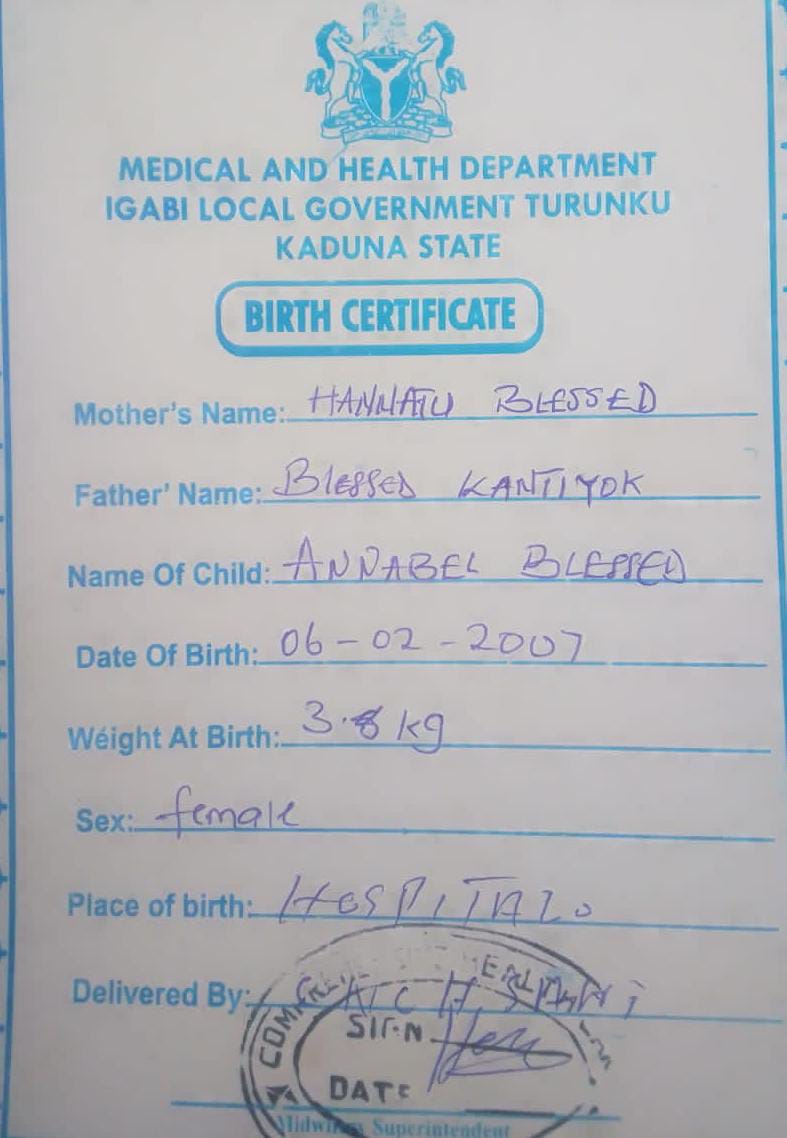 MEDICAL AND HEALTH DEPARTMENT
IGABI LOCAL GOVERNMENT TURUNKU
KADUNA STATE
BIRTH CERTIFICATE
Mother's Name: HANNATU BLESSED
Father' Name: BLESSED KANTIYOK
Name Of Child: ANNABEL BLESSED
Date Of Birth: 06-02-2007
Weight At Birth: 3.8 kg
Sex: female
Place of birth: HOSPITAL.
Delivered By:
SIGN
DATE
Midwifery Superintendent